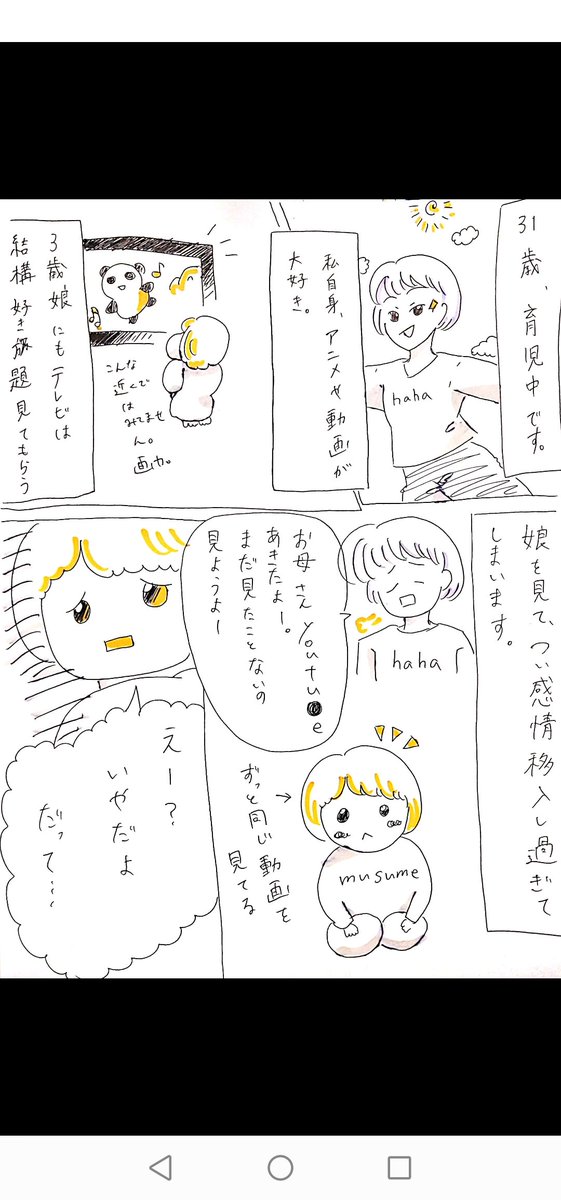 31歳、育児中です。
haha
私自身、アニメや動画が
大好き。
3歳娘にもテレビは
結構好き放題見てもらう
こんな
近くで
はみてませ
ん。
娘を見て、つい感情移入し過ぎて
しまいます。
haha
お母さんyoutu●e
あきたよー。
まだ見たことないの
見ようよー
musume
ずっと同じ動画を
見てる
えー?
いやだよ
だって…